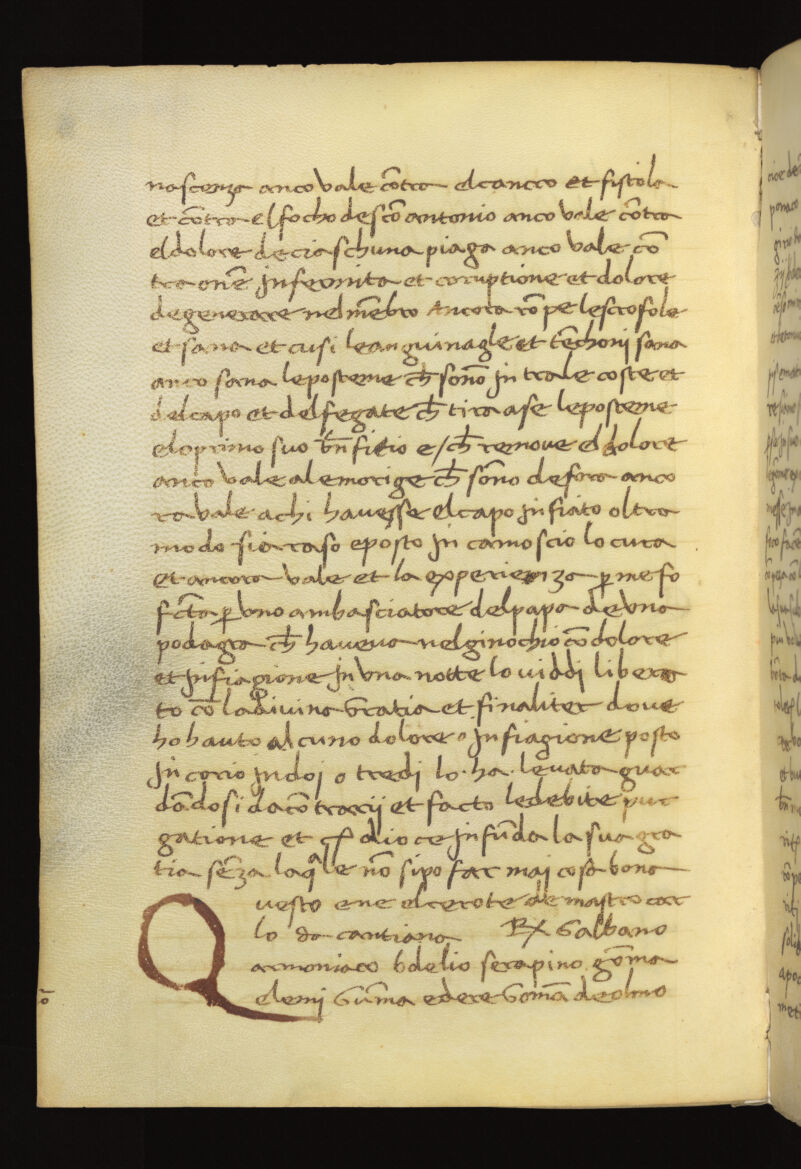 nascenza anco vale cōtra el cancro et fistola
et cōtra el focho de scō antonio anco vale cōtra
el dolore de ciaschuna piaga anco vale cō
tra onē infermita et coruptione et dolore
de generare nel mēbro Ancora rōpe le scrofole
et sana et cusi le anguinagle et tēchoni sana
anco sana le posteme ch̄ sonō in tra le coste et
del capo et del fegate ch̄ tira a se le posteme
el oprimo suo bn̄ficio e / ch̄ remove el dolore
anco vale ale morige ch̄ sōno de fora anco
ra vale a chi havesse el capo infiato oltra
modo sia raso e posto in camoscio lo cura
et ancora vale et la experienza ꝑ me fo
fcta ꝑ vno ambasciatore del papa de vna
podagra ch̄ haveva nel ginochio cō dolore
et infiagione in vna notte lo viddi libera
to cō la divina gratia et finaliter dove
ho hauto alcuno dolore o infiagione posto
in corio in doi o tre di lo ha levata guar
dādosi da cōtrarij et facto le debite pur
gatione et ꝙ dio ce infūda la sua gra
tia sēza la qͣle nō si po far maj cosa bona
Questo ene el cerote de mastro car
lo da cantiana ℞ Galbano
armoniaco bdelio serapino gōma
elemi Gūma edere Gomā de olmo